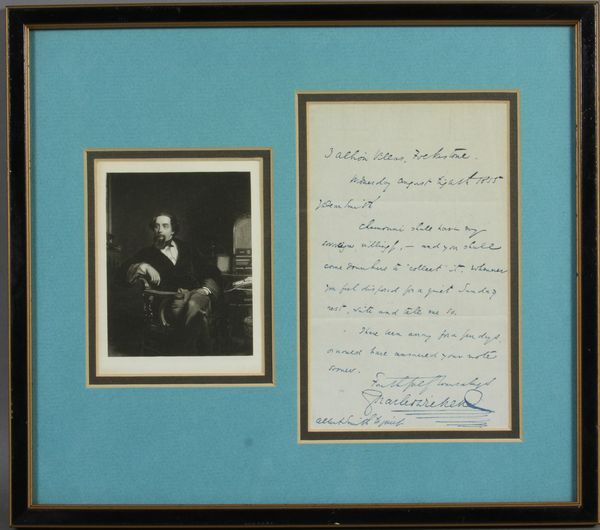 3 Albion Villas, Folkestone.
Wednesday August Eighth 1855
My Dear Smith
Chamouni shall have my
willingly, – and you shall
come down here to "collect" it, whenever
you feel disposed for a quiet Sunday
rest. Write and tell me so.
I have been away for a few days,
or would have answered your note
sooner.
Faithfully Yours always
Charles Dickens
Albert Smith Esquire